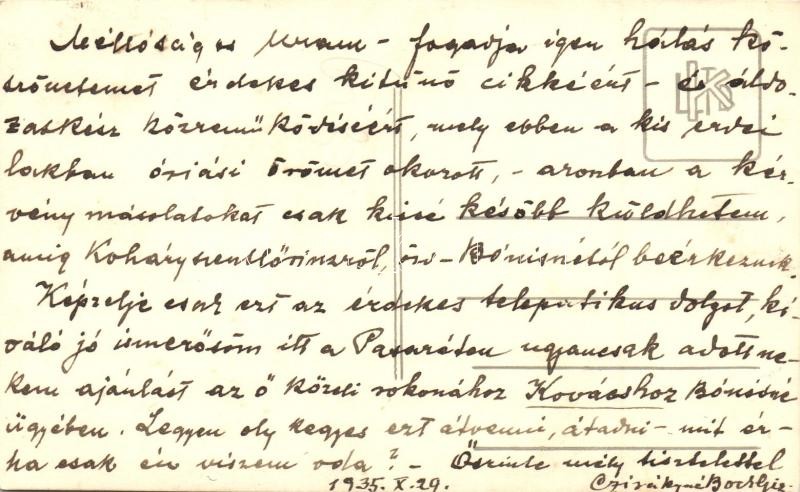 Méltóságos Uram – fogadja igen hálás kö-
szönetemet érdekes kitünő cikkéért – és áldo-
zatkész közremüködéséért, mely ebben a kis erdei
lakban óriási örömet okozott, – azonban a kér-
vény másolatokat csak kissé később küldhetem,
amig Koháryszentlőrinzről, özv – Bónisnétól beérkeznek.
Képzelje csak ezt az érdekes telepatikus dolgot, ki-
váló jó ismerősöm itt a Pasaréten ugyancsak adott ne-
kem ajánlást az ő közeli rokonához Kovácshoz Bónisné
ügyében. Legyen oly kegyes ezt átvenni, átadni – mit ér-
ha csak én viszem oda? – Őszinte mély tisztelettel
1935. X. 29.